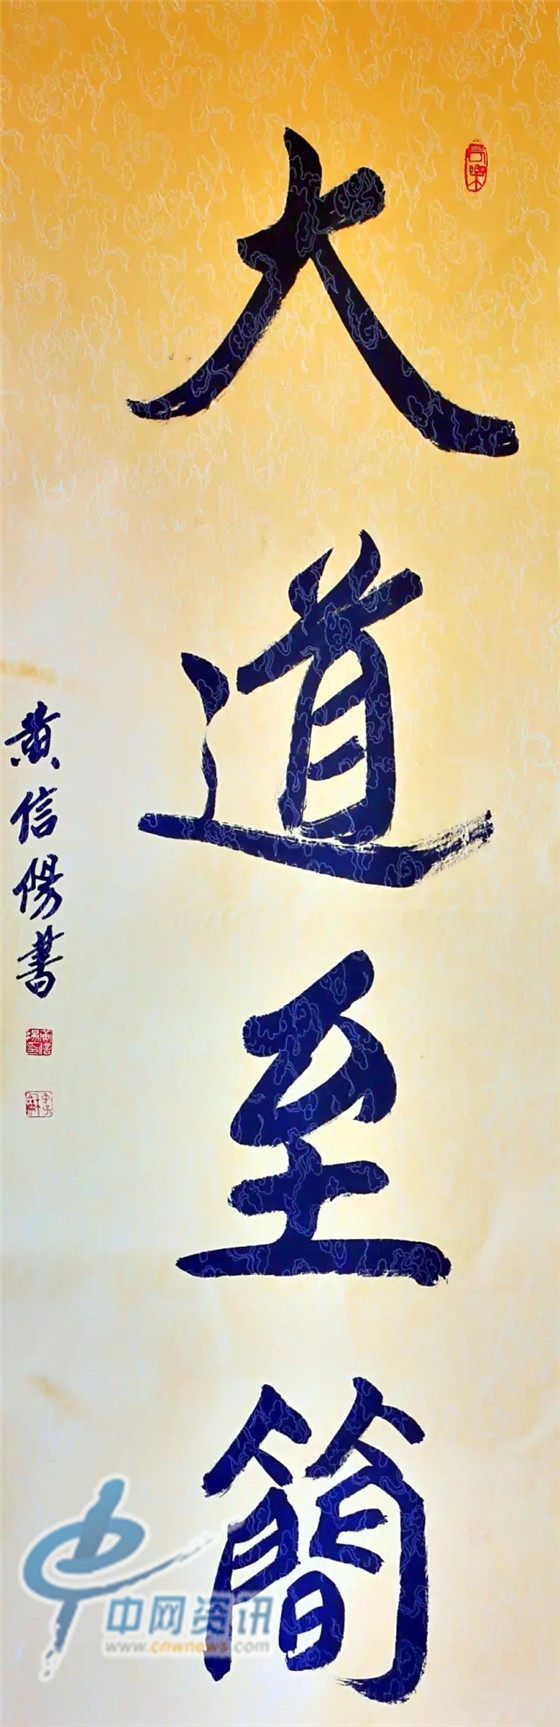 大道至簡
黄信陽書
中网资讯
www.cnwnews.com